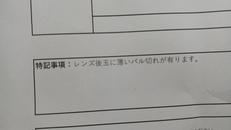 特記事項：レンズ後玉に薄いバル切れが有ります。